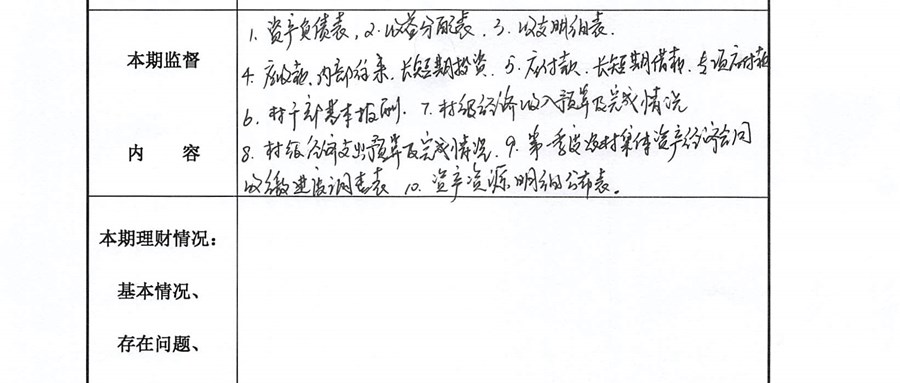 本期监督
内 容
1. 资产负债表, 2. 收益分配表. 3. 收支明细表.
4. 应收款. 内部往来. 长短期投资. 5. 应付款. 长短期借款. 专项应付款
6. 村干部基本报酬. 7. 村级经济收入预算及完成情况
8. 村级经济支出预算及完成情况. 9. 第一季度农村集体资产经济合同
收缴进度调查表 10. 资产资源明细公布表。
本期理财情况：
基本情况、
存在问题、